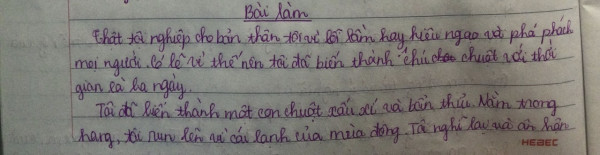 Bài làm
Thật tội nghiệp cho bản thân tôi vì lỗi lầm hay kiêu ngạo và phá phách
mọi người. Có lẽ vì thế nên tôi đã biến thành chú chuột với thời
gian cả ba ngày.
Tôi đã biến thành một con chuột xấu xí và bẩn thỉu. Nằm trong
hang, tôi run lên vì cái lạnh của mùa đông. Tôi nghĩ lại và ân hận
HEBEC